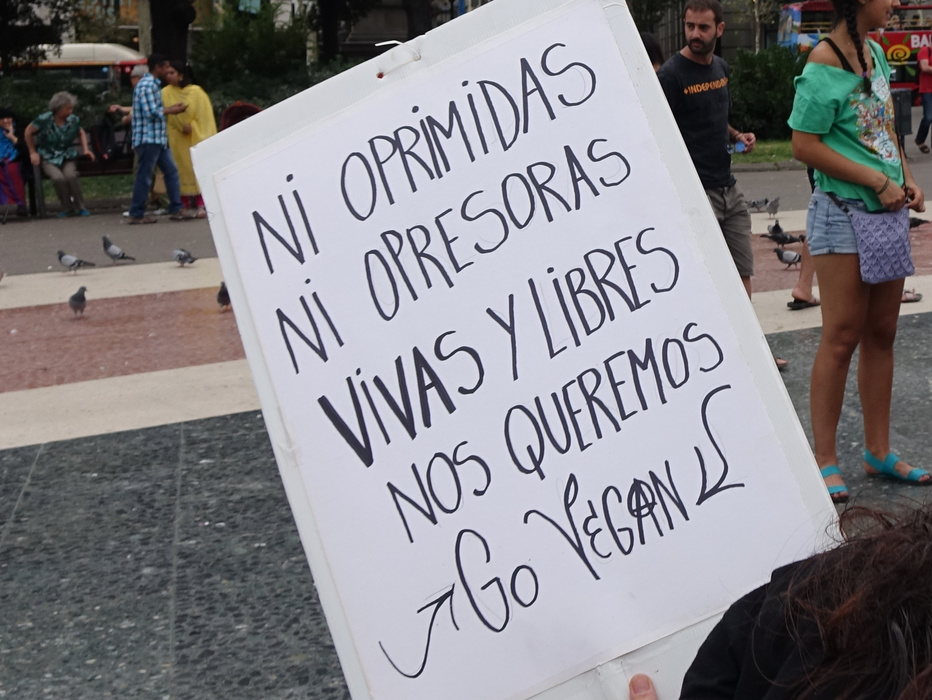 NI OPRIMIDAS
NI OPRESORAS
VIVAS Y LIBRES
NOS QUEREMOS
GO VEGAN